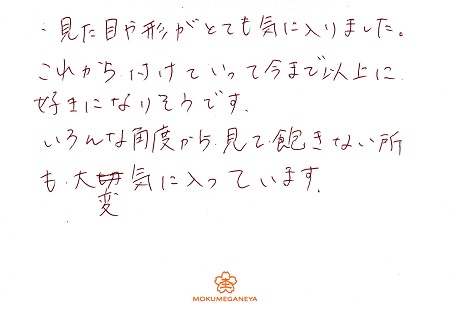 ・見た目や形がとても気に入りました。
これから付けていって今まで以上に
好きになりそうです。
いろんな角度から見て飽きない所
も大変気に入っています。
MOKUMEGANEYA